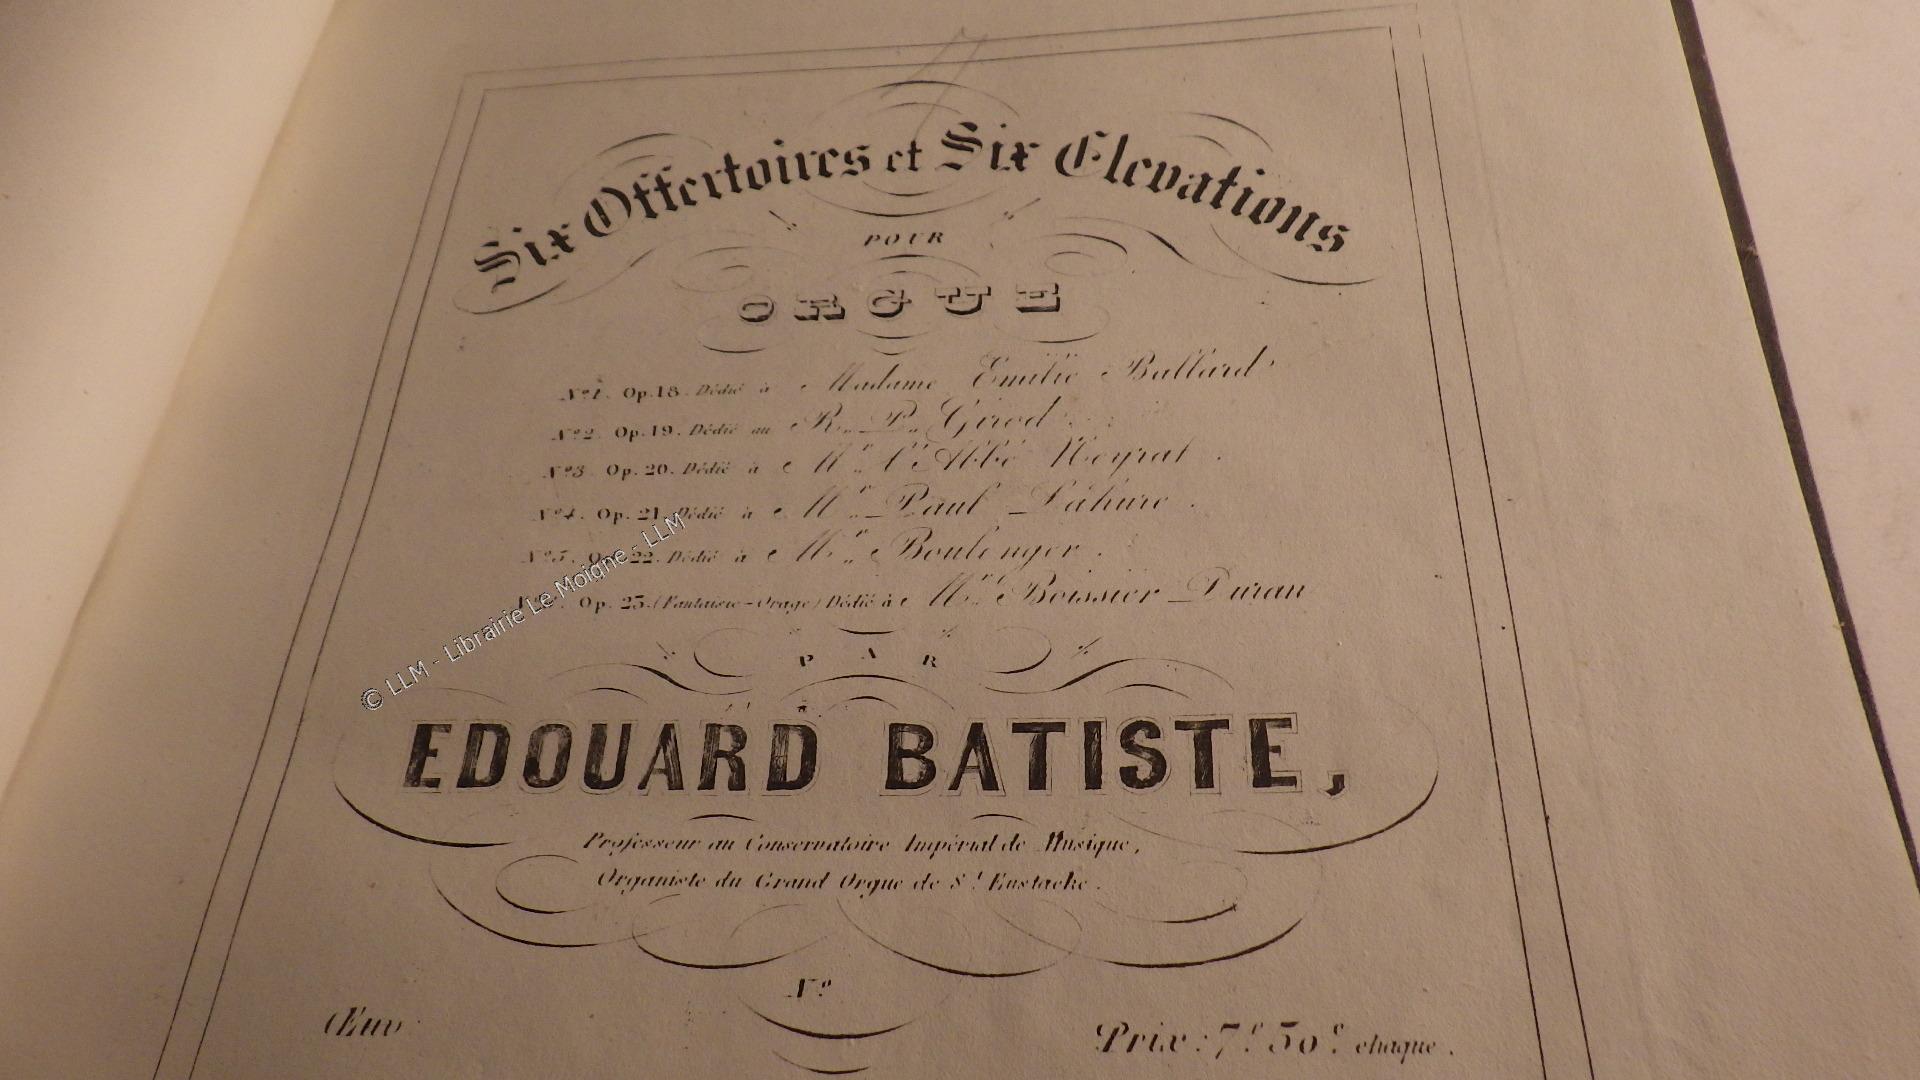 Six Offertoires et Six Elevations
POUR
ORGUE
Nº1. Op.18. Dédié à Madame Emilie Ballard.
Nº2. Op.19. Dédié au R. P. Girod
Nº3. Op. 20. Dédié à Mr. l'Abbé Neyrat.
Nº4. Op. 21. Dédié à Mr. Paul Lahure.
Nº5. Op. 22. Dédié à Mr. Boulenger.
Op. 23. (Fantaisie-Orage) Dédié à Mr. Boissier Duran
© LLM - Librairie Le Moigne - LLM
PAR
EDOUARD BATISTE,
Professeur au Conservatoire Impérial de Musique,
Organiste du Grand Orgue de St Eustache.
Nº
Œuv
Prix: 7f 50c chaque.